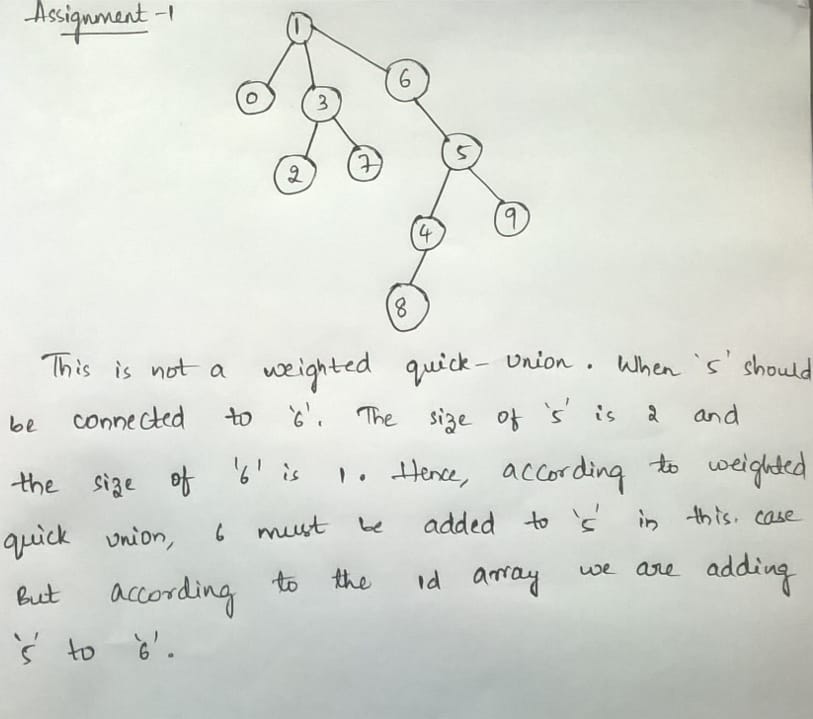 Assignment -1
1
6
0
3
2
7
5
4
9
8
This is not a weighted quick-union. When '5' should
be connected to '6'. The size of '5' is 2 and
the size of '6' is 1. Hence, according to weighted
quick union, 6 must be added to '5' in this. case
But according to the id array we are adding
'5' to '6'.